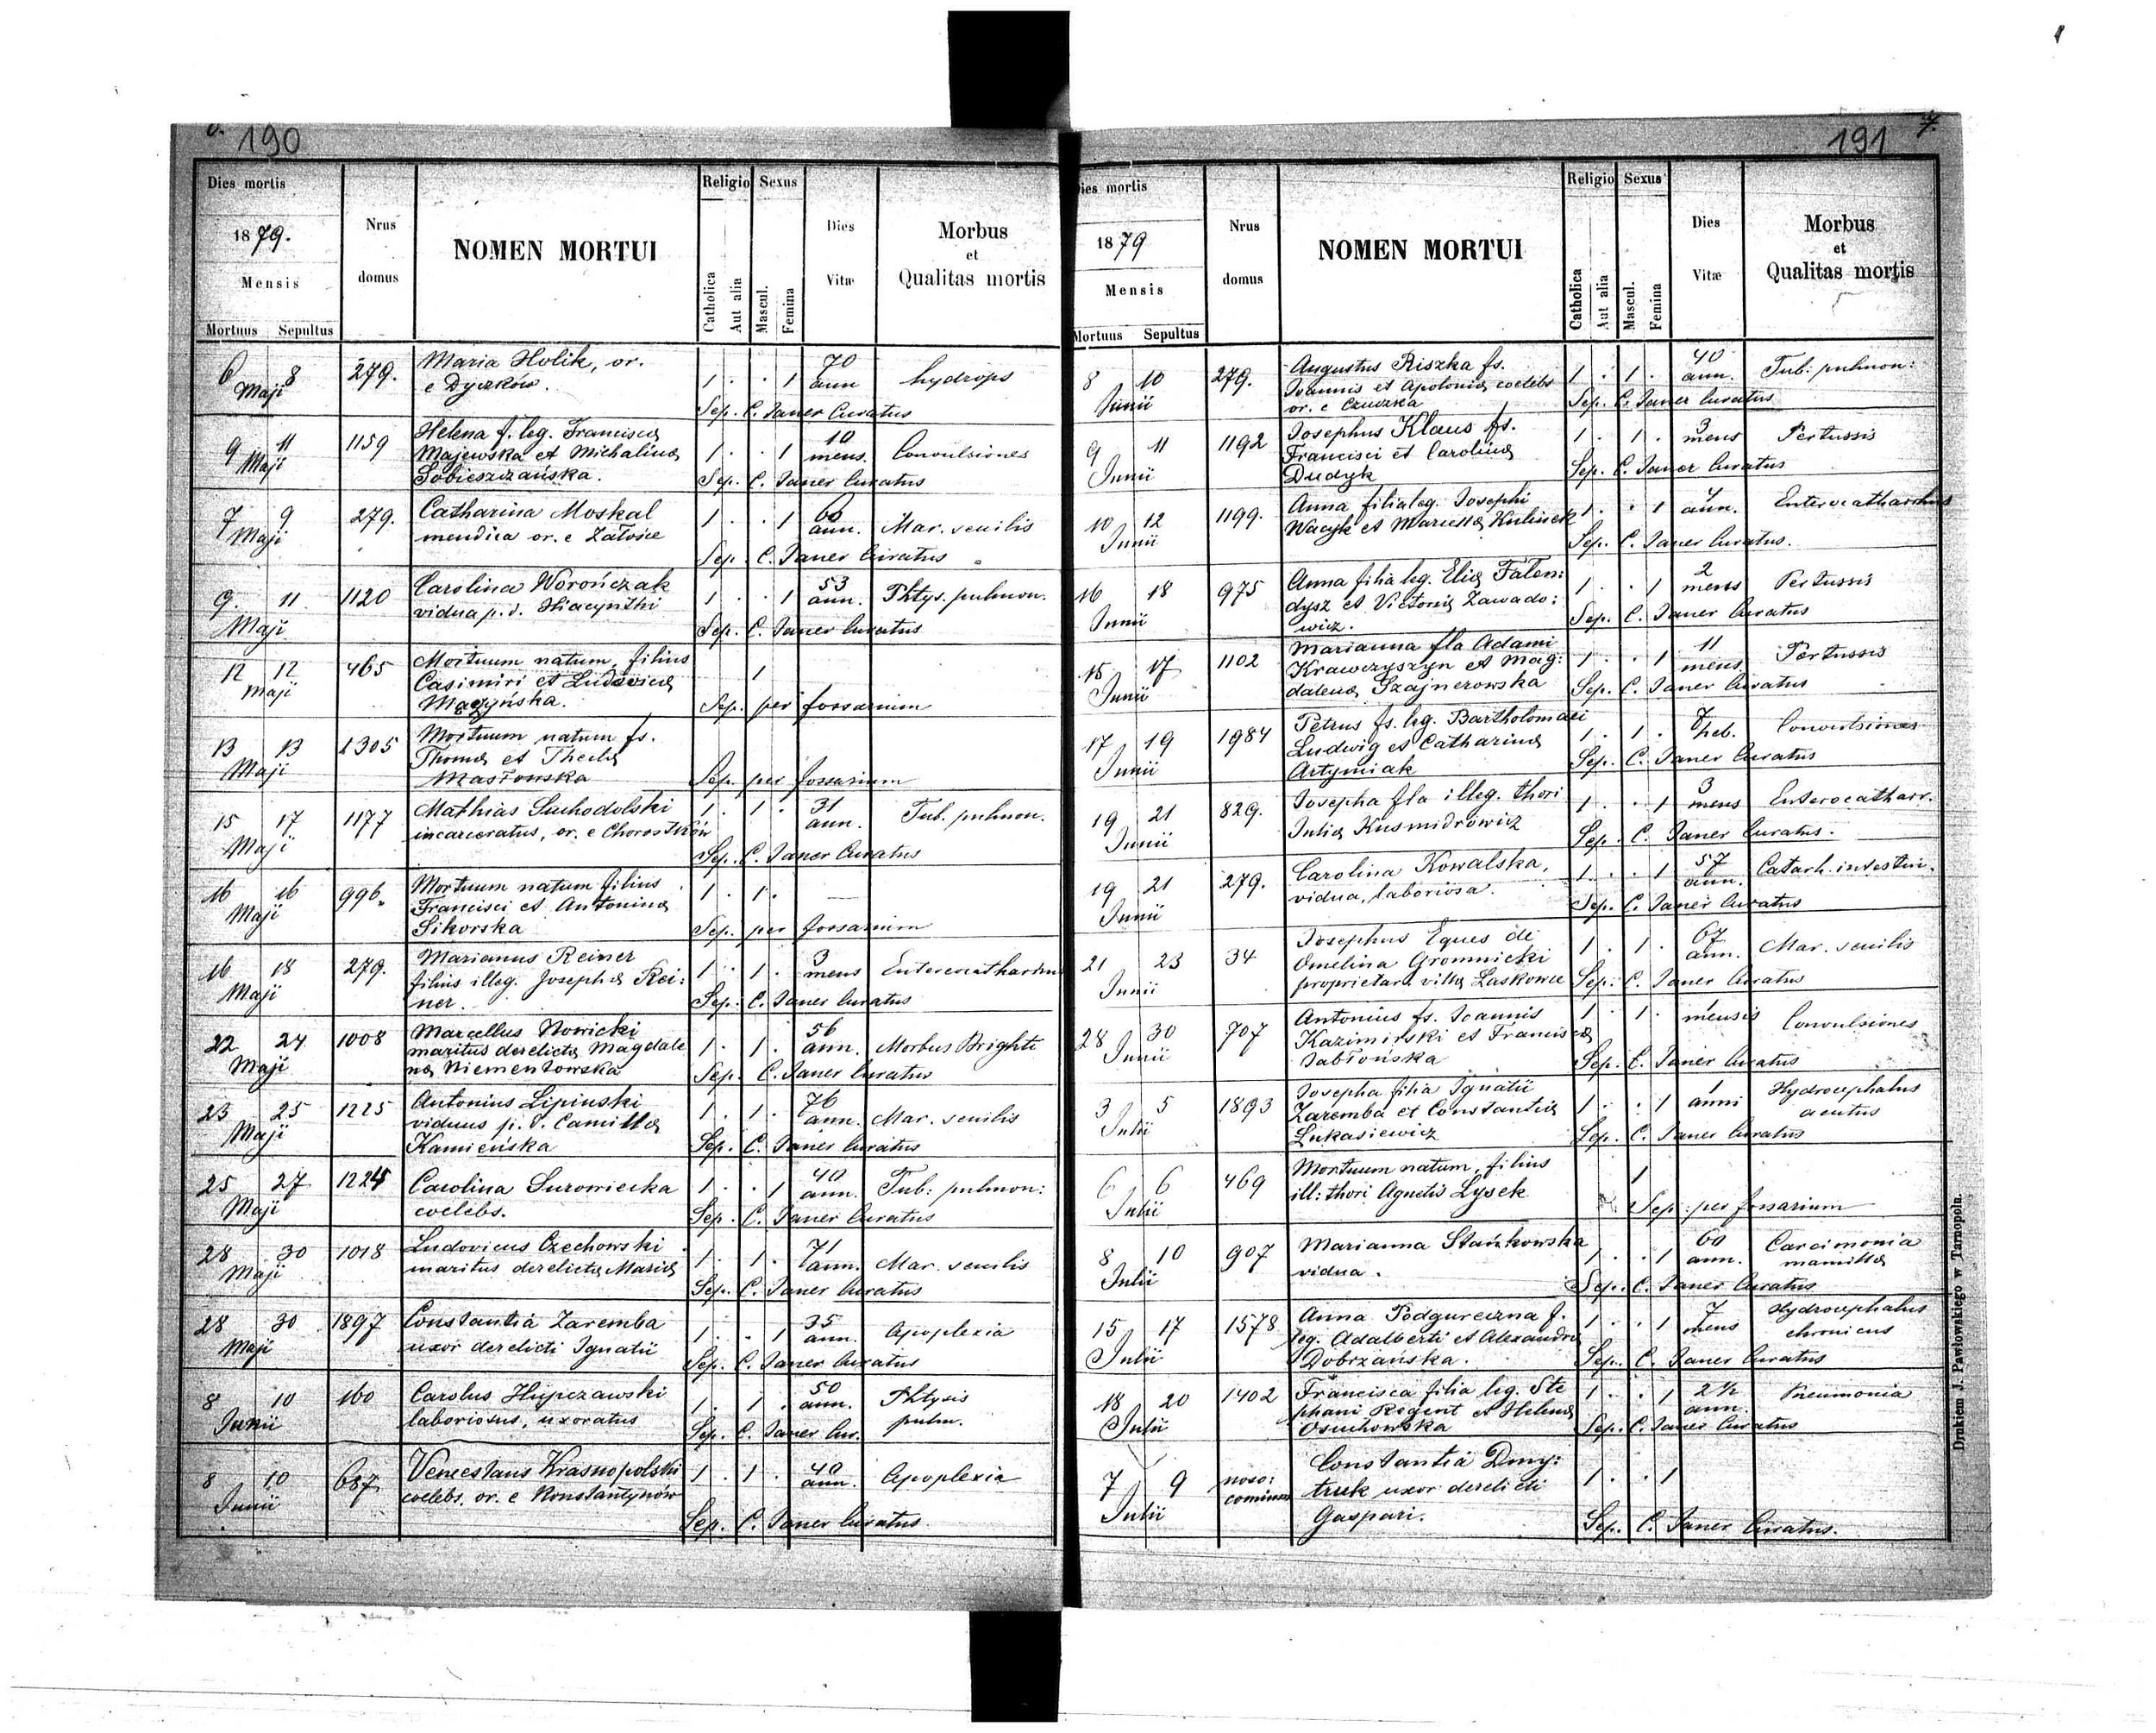 190
Dies mortis
1879.
Mensis
Mortuus Sepultus
Nrus domus
NOMEN MORTUI
Religio
Catholica
Aut alia
Sexus
Mascul.
Femina
Dies Vitæ
Morbus et Qualitas mortis
6 8 279. Maria Holik, or. 1 . . 1 70 hydrops
Maji e Dyczków. ann
Sep. C. Janer Curatus
9 11 1159 Helena f. leg. Francisca 10
Maji Majewska et Michalina 1 . . 1 mens. Convulsiones
Sobieszczańska. Sep. C. Janer Curatus
7 9 279. Catharina Moskal 1 . . 1 60 Mar. senilis
Maji mendica or. e Załośce ann.
Sep. C. Janer Curatus
9. 11. 1120 Carolina Worończak 1 . . 1 53 Phtys. pulmon.
Maji vidua p. d. Hiacynthi ann.
Sep. C. Janer Curatus
12 12 465 Mortuum natum, filius
Maji Casimiri et Ludovica 1
Mączyńska. Sep. per fossarium
13 13 1305 Mortuum natum fs.
Maji Thoma et Thecla
Masłowska Sep. per fossarium
15 17 1177 Mathias Suchodolski 1 . 1 . 31 Tub. pulmon.
Maji incarceratus, or. e Chorostków ann.
Sep. C. Janer Curatus
16 16 996. Mortuum natum filius 1 . 1 .
Maji Francisci et Antonina
Sikorska Sep. per fossarium
16 18 279. Marianus Reiner 3
Maji filius illeg. Josepha Rei: 1 . 1 . mens Enterocatharrhus
ner. Sep. C. Janer Curatus
22 24 1008 Marcellus Nowicki 56
Maji maritus derelicta Magdale 1 . 1 . ann. Morbus Brighti
na Niementowska Sep. C. Janer Curatus
23 25 1225 Antonius Lipinski 76
Maji viduus p. d. Camilla 1 . 1 . ann. Mar. senilis
Kamieńska Sep. C. Janer Curatus
25 27 1224 Carolina Surowiecka 1 . . 1 40 Tub: pulmon:
Maji coelebs. ann.
Sep. C. Janer Curatus
28 30 1018 Ludovicus Czechowski 1 . 1 . 71 Mar. senilis
Maji maritus derelicta Maria ann.
Sep. C. Janer Curatus
28 30 1897 Constantia Zaremba 1 . . 1 35 Apoplexia
Maji uxor derelicti Ignatii ann.
Sep. C. Janer Curatus
8 10 160 Carolus Hupczawski 1 . 1 . 50 Phtysis
Junii laboriosus, uxoratus ann. pulm.
Sep. C. Janer Cur.
8 10 687 Venceslaus Krasnopolski 1 . 1 . 40 Apoplexia
Junii coelebs. or. e Konstantynów ann.
Sep. C. Janer Curatus.
191
7.
Dies mortis
1879
Mensis
Mortuus Sepultus
Nrus domus
NOMEN MORTUI
Religio
Catholica
Aut alia
Sexus
Mascul.
Femina
Dies Vitæ
Morbus et Qualitas mortis
8 10 279. Augustus Riszka fs. 40
Junii Joannis et Apolonia coelebs 1 . 1 . ann. Tub: pulmon:
or. e Czuczka Sep. C. Janer Curatus
9 11 1192 Josephus Klaus fs. 1 . 1 . 3 Pertussis
Junii Francisci et Carolina mens
Dudyk Sep. C. Janer Curatus
10 12 1199. Anna filia leg. Josephi 1 . . 1 4 Enterocatharrhus
Junii Wacyk et Marcella Kulinek ann.
Sep. C. Janer Curatus.
16 18 975 Anna filia leg. Elia Falen: 2
Junii dysz et Victoria Zawado: 1 . . 1 mens Pertussis
wicz. Sep. C. Janer Curatus
15 17 1102 Marianna fla Adami 11
Junii Krawczyszyn et Mag: 1 . . 1 mens Pertussis
dalena Szajnerowska Sep. C. Janer Curatus
17 19 1984 Petrus fs. leg. Bartholomaei 7
Junii Ludwig et Catharina 1 . 1 . heb. Convulsiones
Artymiak Sep. C. Janer Curatus
19 21 829. Josepha fla illeg. thori 1 . . 1 3 Enterocatharr.
Junii Julia Kusmidrowicz mens
Sep. C. Janer Curatus.
19 21 279. Carolina Kowalska, 1 . . 1 57 Catarh. intestin.
Junii vidua, laboriosa. ann.
Sep. C. Janer Curatus
21 23 34 Josephus Eques de 67
Junii Omelina Gromnicki 1 . 1 . ann. Mar. senilis
proprietar. villa Laskowce Sep. C. Janer Curatus
28 30 707 Antonius fs. Joannis 1 . 1 . 1 mensis Convulsiones
Junii Kazimirski et Francisca
Jabłońska Sep. C. Janer Curatus
3 5 1893 Josepha filia Ignatii 1 Hydrocephalus
Julii Zaremba et Constantia 1 . . 1 anni acutus
Lukasiewicz Sep. C. Janer Curatus
6 6 469 Mortuum natum, filius 1
Julii ill: thori Agnetis Lysek
Sep: per fossarium
8 10 907 Marianna Stańkowska 1 . . 1 60 Carcimonia
Julii vidua. ann. mamilla
Sep. C. Janer Curatus
15 17 1578 Anna Podgureczna f. 1 . . 1 7 Hydrocephalus
Julii leg. Adalberti et Alexandra mens chronicus
Dobrzańska. Sep. C. Janer Curatus
18 20 1402 Francisca filia leg. Ste 1 . . 1 2½ Pneumonia
Julii phani Regent et Helena ann.
Osuchowska Sep. C. Janer Curatus
7 9 noso: Constantia Dmy:
Julii comium truk uxor derelicti 1 . . 1
Gaspari. Sep. C. Janer Curatus.
Drukiem J. Pawłowskiego w Tarnopolu.